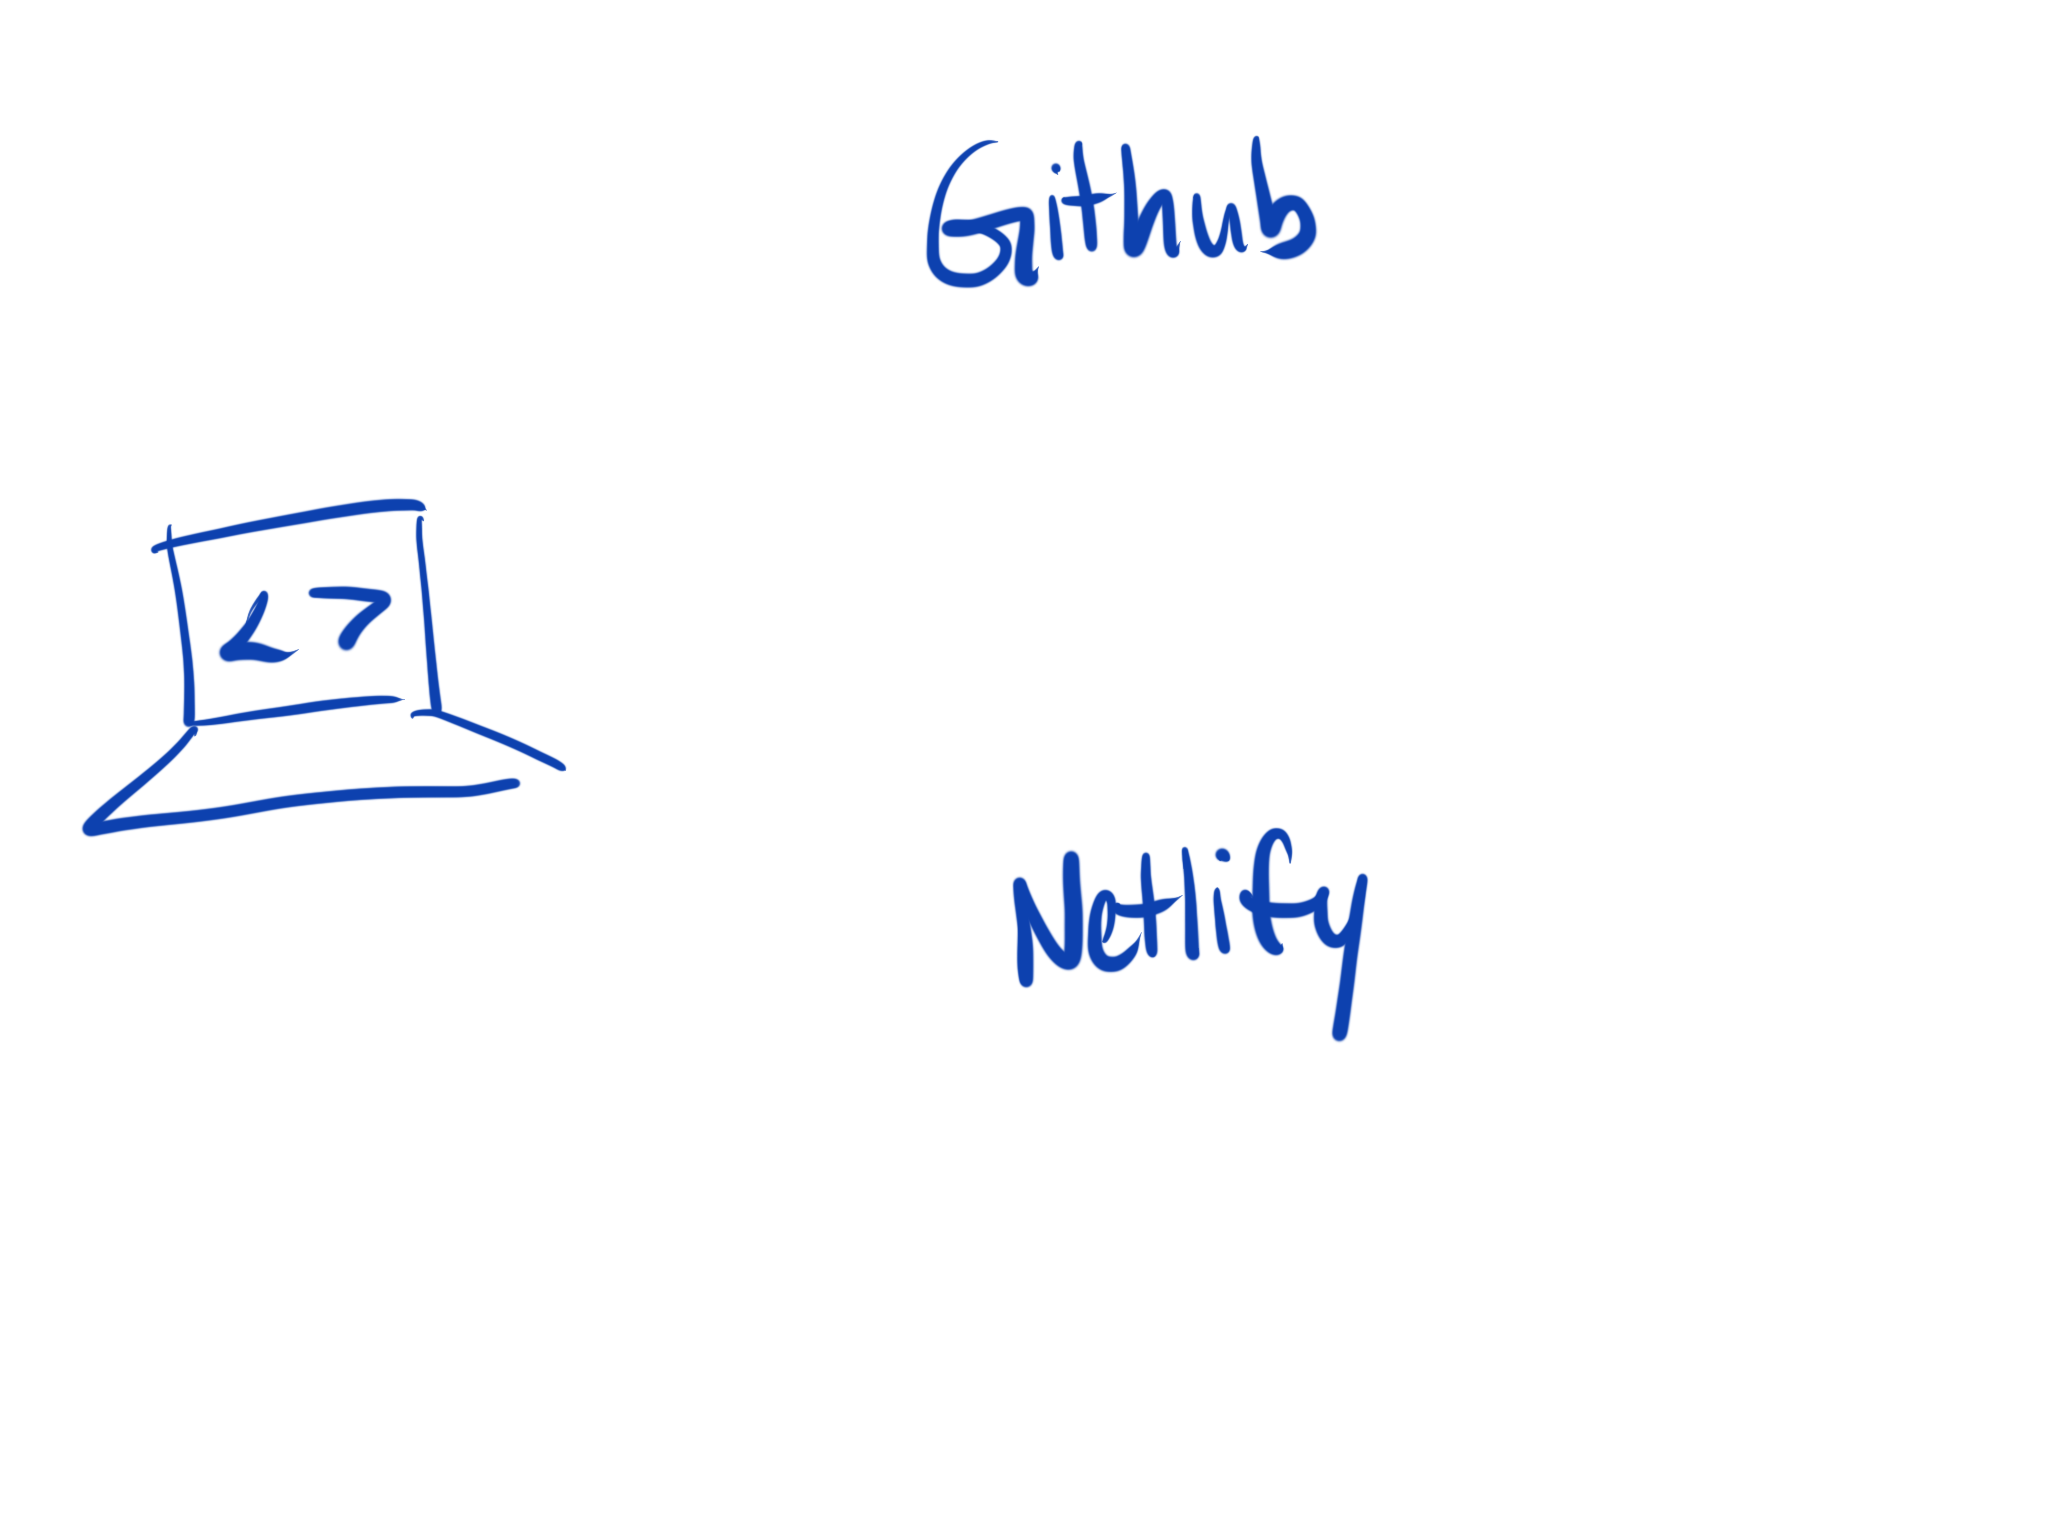 Github
< >
Netlify